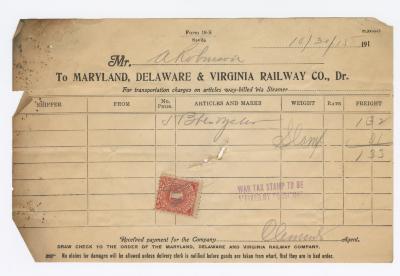 Form 18-S
10/30/15 191
Mr. A Robinson
To MARYLAND, DELAWARE & VIRGINIA RAILWAY CO., Dr.
For transportation charges on articles way-billed via Steamer
SHIPPER FROM No. Pkgs. ARTICLES AND MARKS WEIGHT RATE FREIGHT
132
Stamp 01
133
WAR TAX STAMP TO BE
Received payment for the Company Agent.
DRAW CHECK TO THE ORDER OF THE MARYLAND, DELAWARE AND VIRGINIA RAILWAY COMPANY.
No claims for damages will be allowed unless delivery clerk is notified before goods are taken from wharf, that they are in bad order.